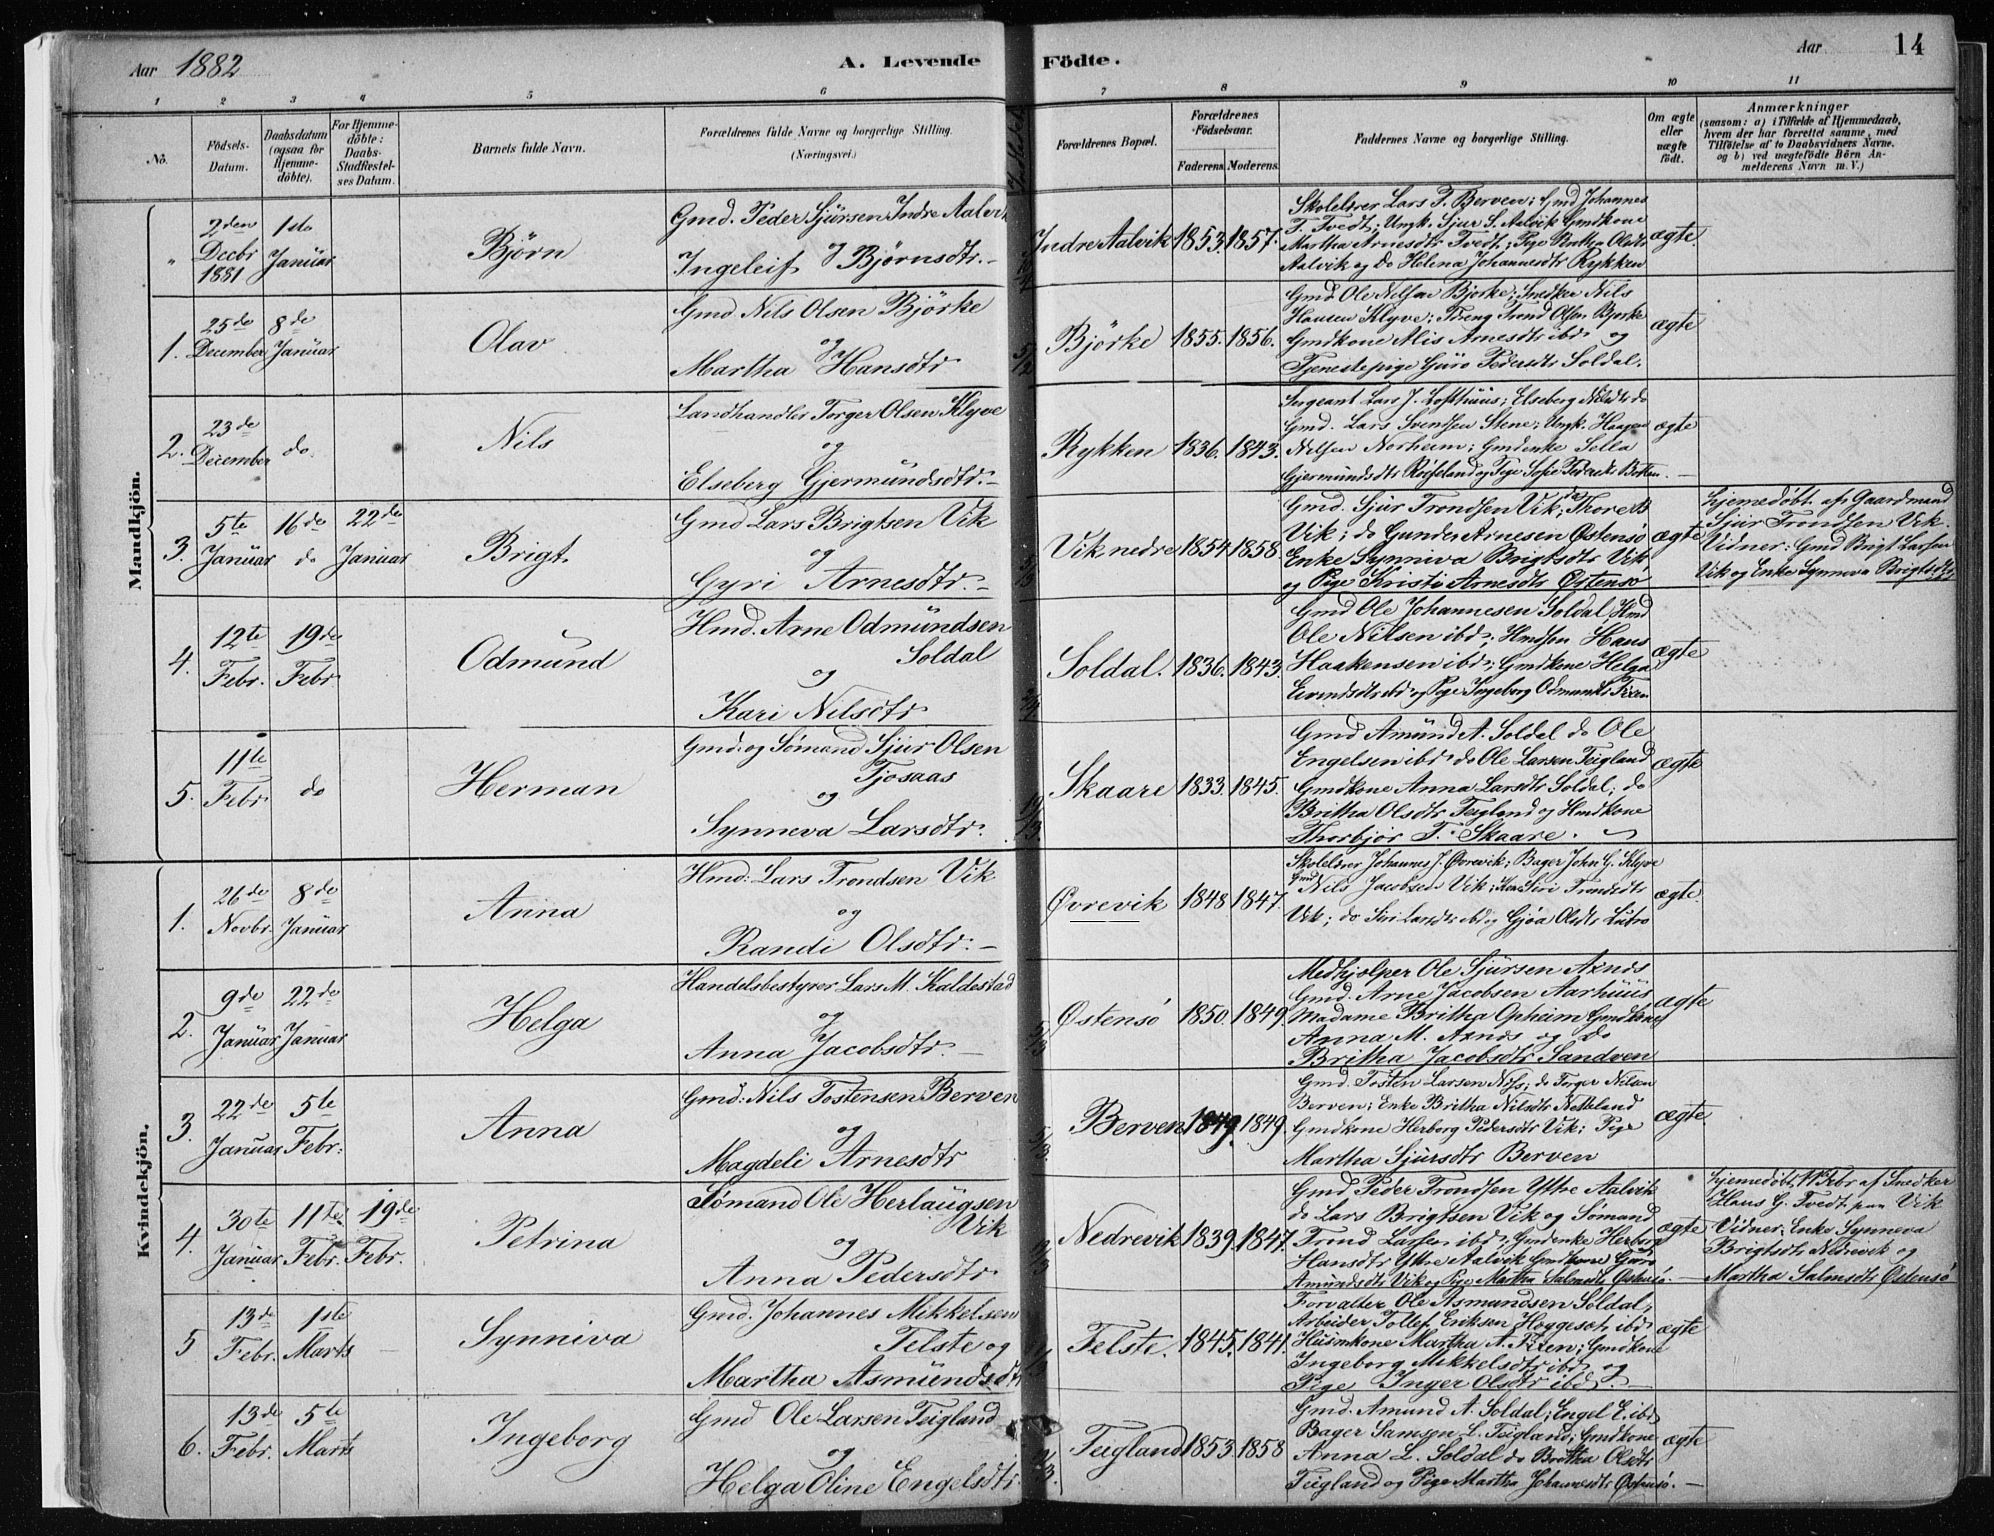 Aar 1882
A. Levende Födte.
Aar
14
1 2 3 4 5 6 7 8 9 10 11
No.
Födsels-Datum.
Daabsdatum (ogsaa for Hjemme-döbte).
For Hjemme-döbte: Daabs-Stadfæstel-ses Datum.
Barnets fulde Navn.
Forældrenes fulde Navne og borgerlige Stilling.
(Næringsvei.)
Forældrenes Bopæl.
Forældrenes Födselsaar.
Faderens. Moderens.
Faddernes Navne og borgerlige Stilling.
Om ægte eller uægte födt.
Anmærkninger
(saasom: a) i Tilfælde af Hjemmedaab,
hvem der har forrettet samme, med
Tilföielse af to Daabsvidners Navne.
og b) ved uægtefödte Börn An-
melderens Navn m. V.)
Mandkjön.
" 2den Decbr 1881 1ste Januar
Björn
Gmd. Peder Sjürsen Indre Aalvik
Ingeleif Björnsdtr.
Indre Aalvik 1853. 1857.
Skolelærer Lars T. Berven; Gmd Johannes
T. Tvedt; Ungk. Sjur S. Aalvik Gmdkone
Martha Arnesdtr Tvedt; Pige Brita Olsdtr
Aalvik og do Helena Johannesdtr Rykken
ægte.
1. 25de December 8de Januar
Olav
Gmd. Nils Olsen Björke
og
Martha Hansdtr
Björke 1855. 1856.
Gmd Ole Nelsen Bjorke; Snedker Nils
Hansen Klyve; Trond Olsen Bjorke
Gmdkone Alis Arnesdtr ibd og
Tjenestepige Guro Pedersdtr Soldal.
ægte
2. 23de December do.
Nils
Landhandler Torger Olsen Klyve
og
Elseberg Gjermundsdtr.
Rykken 1836. 1843.
Sergeant Lars J. Lofthuus; Elseberg Nilsdtr do
Gmd. Lars Svendsen Stene; Ungk. Haagen
Nelsen Norheim; Gmdenke Sella
Gjermundsdtr Røiseland og Pige Sofie Pedersdtr Botnen.
ægte
3. 5te Januar 16de do 22de Januar
Brigt.
Gmd Lars Brigtsen Vik
og
Gyri Arnesdtr.
Vik nedre 1854 1858
Gmd. Sjur Trondsen Vik; do Thore
Vik; do Gunder Arnesen Østensö
Enke Synniva Brigtsdtr Vik
og Pige Kristi Arnesdtr Östensö
ægte
hjemedøbt af Gaardmand
Sjur Trondsen Vik.
Vidner: Gmd Brigt Larsen
Vik og Enke Synneva Brigtsdtr
4. 12te Febr. 19de Febr
Odmund
Hmd. Arne Odmundsen
Soldal
og
Kari Nilsdtr
Soldal. 1836. 1843.
Gmd Ole Johannesen Soldal, Hmd
Ole Nilsen ibd; Hmdsøn Hans
Haakensen ibd; Gmdkone Helga
Eivindsdtr ibd og Pige Ingeborg Odmundsdtr Fixen
ægte
5. 11te Febr. do
Herman
Gmd. og Sømand Sjur Olsen
Tjosaas
og
Synneva Larsdtr.
Skaare 1833. 1845.
Gmd Amünd A. Soldal do Ole
Engelsen ibd. do Ole Larsen Teigland
Gmdkone Anna Larsdtr Soldal; do
Britha Olsdtr Teigland og Hmdkone
Thorbjør T. Skaare.
ægte
Kvindekjön.
1. 26de Novbr. 8de Januar
Anna
Hmd. Lars Trondsen Vik
og
Randi Olsdtr.
Øvrevik 1848 1847.
Skolelærer Johannes J. Øvrevik; Bager John G. Klyve
Gmd Nils Jacobsen Vik; Kone Siri Trondsdtr
Vik; do Siri Larsdtr ibd og Gjøa Olsdtr Lutro
ægte.
2. 9de Januar 22de Januar
Helga
Handelsbestyrer Lars M. Kaldestad
og
Anna Jacobsdtr.
Østensö 1850. 1849.
Medhjælper Ole Sjürsen Axnes
Gmd. Arne Jacobsen Aarhüüs
Madame Britha Opheim Gmdkone
Anna M. Axnes og do
Britha Jacobsdtr Sandven
ægte
3. 22de Januar 5te Febr:
Anna
Gmd: Nils Tostensen Berven
og
Magdeli Arnesdtr
Berven 1849. 1849.
Gmd. Tosten Larsen Næs; do Torger Nilsen
Berven; Enke Britha Nilsdtr Netteland
Gmdkone Herborg Pedersdtr Vik; Pige
Martha Sjursdtr Berven
ægte.
4. 30te Januar 11te Febr. 19de Febr.
Petrina
Sømand Ole Herlaugsen
Vik
og
Anna Pedersdtr
Nedrevik 1839. 1847.
Gmd. Peder Trondsen Yttre Aalvik
do Lars Brigtsen Vik og Sømand
Trond Larsen ibd; Gmdenke Herborg
Hansdtr Yttre Aalvik Gmdkone Guro
Amundsdtr Vik og Pige Martha Salmsdtr Østensö.
ægte
hjemedøbt 11 Febr af Snedker
Hans G. Tvedt paa Vik
Vidner: Enke Synneva
Brigtsdtr Nedrevik og
Martha Salmsdtr Østensö
5 13de Febr. 1ste Marts
Synniva
Gmd. Johannes Mikkelsen
Telste og
Martha Asmundsdtr
Telste. 1845. 1841.
Forvalter Ole Asmundsen Soldal,
Arbeider Tollef Eriksen Heggeset ibd
Huusmkone Martha A. Fixen; Gmdkone
Ingeborg Mikkelsdtr ibd og
Pige Inger Olsdtr ibd.
ægte
6. 13de Febr. 5te Marts
Ingeborg
Gmd Ole Larsen Teigland
og
Helga Oline Engelsdtr
Teigland 1853. 1858
Gmd. Amund A. Soldal; Engel E. ibd
Bager Samson L. Teigland; Gmdkone
Anna L. Soldal do Britha Olsdtr
Teigland og Pige Martha Johannesdtr Østensö.
ægte